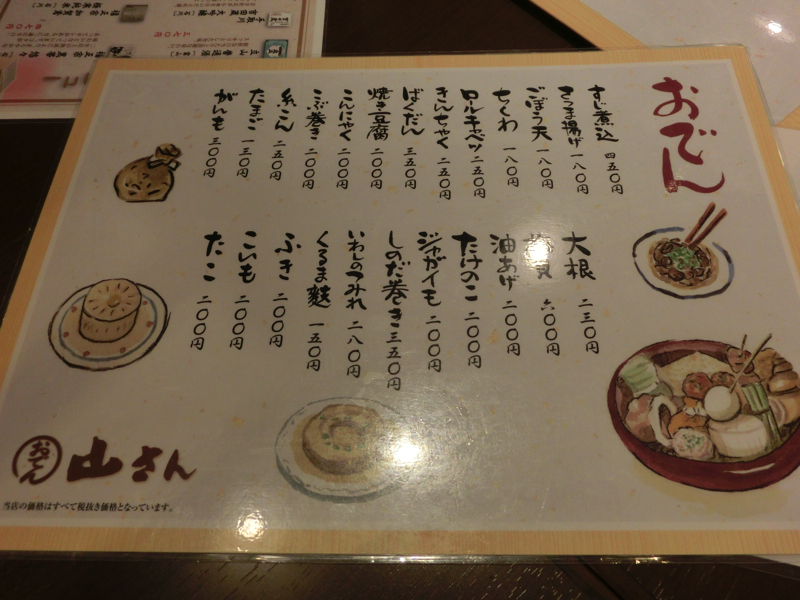 おでん
すじ煮込 四五〇円
さつま揚げ 一八〇円
ごぼう天 一八〇円
ちくわ 一八〇円
ロールキャベツ 二五〇円
きんちゃく 二五〇円
ばくだん 三五〇円
焼き豆腐 二〇〇円
こんにゃく 二〇〇円
こぶ巻き 二〇〇円
糸こん 二五〇円
たまご 一三〇円
がんも 三〇〇円
大根 二三〇円
六〇〇円
油あげ 二〇〇円
たけのこ 二〇〇円
ジャガイモ 二〇〇円
しのだ巻き 三五〇円
いわしのつみれ 二八〇円
くるま麩 一五〇円
ふき 二〇〇円
こいも 二〇〇円
たこ 二〇〇円
おでん 山さん
当店の価格はすべて税抜き価格となっています。